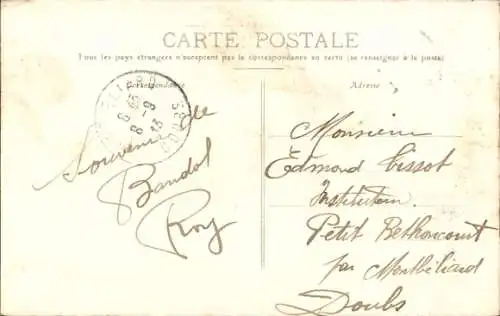 CARTE POSTALE
Tous les pays étrangers n'acceptent pas la correspondance au recto (se renseigner à la poste)
Correspondance
Adresse
DOUBS
Souvenir de
Bandol
Roy
Monsieur
Edmond Cissot
Instituteur
Petit Bethoncourt
par Montbéliard
Doubs